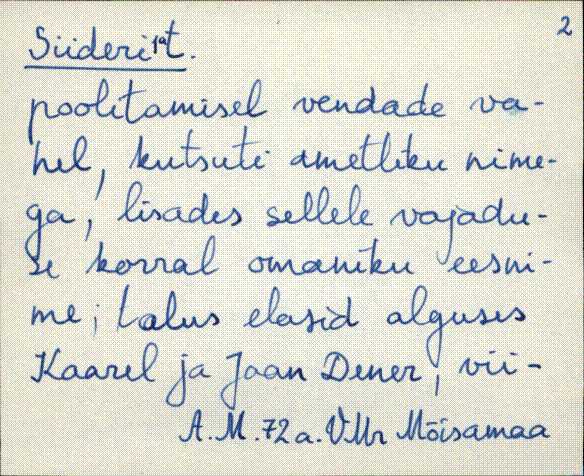 2
Siideri jat.
poolitamisel vendade va-
hel, kutsuti ametliku nime-
ga, lisades sellele vajadu-
se korral omaniku eesni-
me; talus elasid alguses
Kaarel ja Jaan Dener, vii-
A.M. 72 a. VMr Mõisamaa